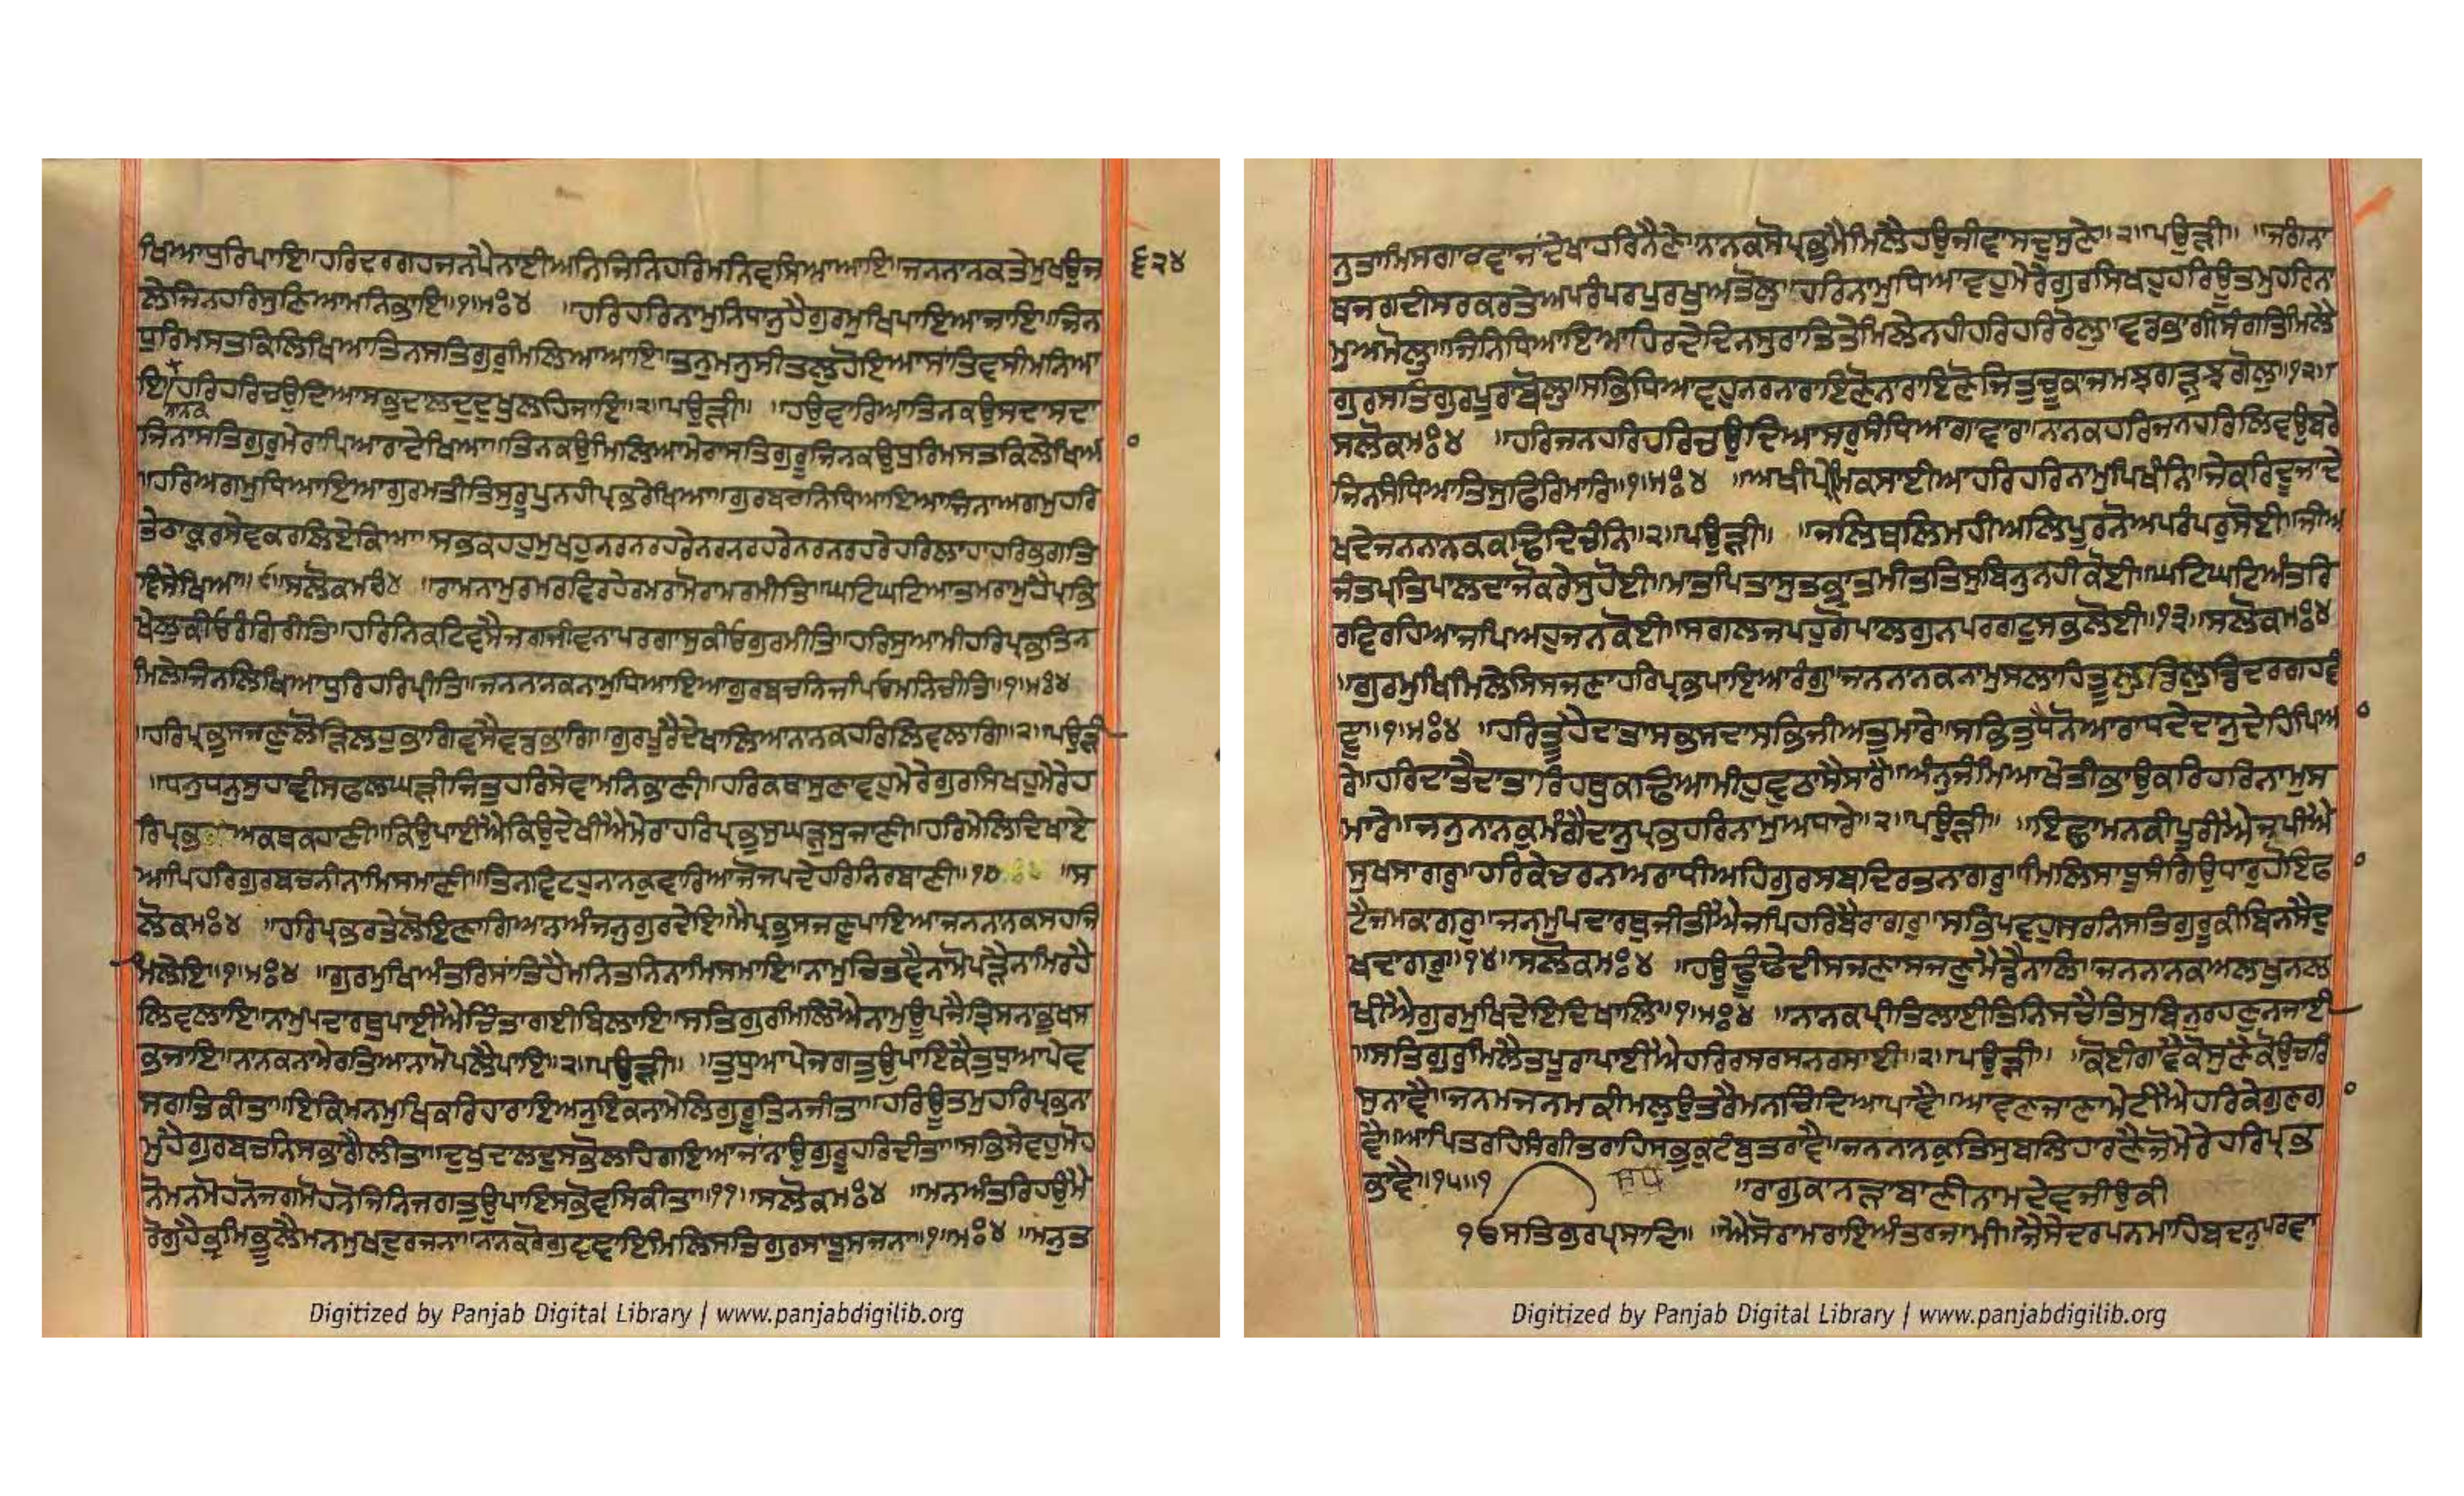 ਖਿਆਧੁਰਿਪਾਇ॥ਹਰਿਦਰਗਹਜਨਪੈਨਾਈਅਨਿਜਿਨਿਹਰਿਮਨਿਵਸਿਆਆਇ॥ਜਨਨਾਨਕਤੇਮੁਖਉਜ
੬੨੪
ਲੇਜਿਨਹਰਿਸੁਣਿਆਮਨਿਭਾਇ॥੧॥ਮਃ੪ ॥ਹਰਿਹਰਿਨਾਮੁਨਿਧਾਨੁਹੈਗੁਰਮੁਖਿਪਾਇਆਜਾਇ॥ਜਿਨ
ਧੁਰਿਮਸਤਕਿਲਿਖਿਆਤਿਨਸਤਿਗੁਰੁਮਿਲਿਆਆਇ॥ਤਨੁਮਨੁਸੀਤਲੁਹੋਇਆਸਾਂਤਿਵਸੀਮਨਿਆ
ਇ॥ਹਰਿਹਰਿਚਉਦਿਆਸਭੁਦਾਲਦੁਦੁਖੁਲਹਿਜਾਇ॥੨॥ਪਉੜੀ॥ ॥ਹਉਵਾਰਿਆਤਿਨਕਉਸਦਾਸਦਾ
ਨਾਨਕ
ਜਿਨਾਸਤਿਗੁਰੁਮੇਰਾਪਿਆਰਾਦੇਖਿਆ॥ਤਿਨਕਉਮਿਲਿਆਮੇਰਾਸਤਿਗੁਰੂਜਿਨਕਉਧੁਰਿਮਸਤਕਿਲੇਖਿਆ
॥ਹਰਿਅਗਮੁਧਿਆਇਆਗੁਰਮਤੀਤਿਸੁਰੂਪੁਨਹੀਪ੍ਰਭਰੇਖਿਆ॥ਗੁਰਬਚਨਿਧਿਆਇਆਜਿਨਾਅਗਮੁਹਰਿ
ਤੇਠਾਕੁਰਸੇਵਕਰਲਿਏਕਿਆ॥ਸਭਕਹਹੁਮੁਖਹੁਨਰਨਰਹਰੇਨਰਨਰਹਰੇਨਰਨਰਹਰੇਹਰਿਲਾਹਾਹਰਿਭਗਤਿ
ਵਿਸੇਖਿਆ॥੯॥ਸਲੋਕਮਃ੪ ॥ਰਾਮਨਾਮੁਰਮਰਵਿਰਹੇਰਮਰਾਮੋਰਾਮਰਮੀਤਿ॥ਘਟਿਘਟਿਆਤਮਰਾਮੁਹੈਪ੍ਰਭਿ
ਖੇਲੁਕੀਓਰੰਗਿਰੀਤਿ॥ਹਰਿਨਿਕਟਿਵਸੈਜਗਜੀਵਨਾਪਰਗਾਸੁਕੀਓਗੁਰਮੀਤਿ॥ਹਰਿਸੁਆਮੀਹਰਿਪ੍ਰਭੁਤਿਨ
ਮਿਲੇਜਿਨਲਿਖਿਆਧੁਰਿਹਰਿਪ੍ਰੀਤਿ॥ਜਨਨਾਨਕਨਾਮੁਧਿਆਇਆਗੁਰਬਚਨਿਜਪਿਓਮਨਿਚੀਤਿ॥੧॥ਮਃ੪
॥ਹਰਿਪ੍ਰਭੁਸਜਣੁਲੋੜਿਲਹੁਭਾਗਿਵਸੈਵਡਭਾਗਿ॥ਗੁਰਪੂਰੈਦੇਖਾਲਿਆਨਾਨਕਹਰਿਲਿਵਲਾਗਿ॥੨॥ਪਉੜੀ
॥ਧਨੁਧਨੁਸੁਹਾਵੀਸਫਲਘੜੀਜਿਤੁਹਰਿਸੇਵਾਮਨਿਭਾਣੀ॥ਹਰਿਕਥਾਸੁਣਾਵਹੁਮੇਰੇਗੁਰਸਿਖਹੁਮੇਰੇਹ
ਰਿਪ੍ਰਭ ਅਕਥਕਹਾਣੀ॥ਕਿਉਪਾਈਐਕਿਉਦੇਖੀਐਮੇਰਾਹਰਿਪ੍ਰਭੁਸੁਘੜੁਸੁਜਾਣੀ॥ਹਰਿਮੇਲਿਦਿਖਾਏ
ਆਪਿਹਰਿਗੁਰਬਚਨੀਨਾਮਿਸਮਾਣੀ॥ਤਿਨਵਿਟਹੁਨਾਨਕੁਵਾਰਿਆਜੋਜਪਦੇਹਰਿਨਿਰਬਾਣੀ॥੧੦ ॥ਸ
ਲੋਕਮਃ੪ ॥ਹਰਿਪ੍ਰਭਰਤੇਲੋਇਣਾਗਿਆਨਅੰਜਨੁਗੁਰਦੇਇ॥ਮੈਪ੍ਰਭੁਸਜਣੁਪਾਇਆਜਨਨਾਨਕਸਹਜਿ
ਮਿਲੇਇ॥੧॥ਮਃ੪ ॥ਗੁਰਮੁਖਿਅੰਤਰਿਸਾਂਤਿਹੈਮਨਿਤਨਿਨਾਮਿਸਮਾਇ॥ਨਾਮੁਚਿਤਵੈਨਾਮੋਪੜੈਨਾਮਿਰਹੈ
ਲਿਵਲਾਇ॥ਨਾਮੁਪਦਾਰਥੁਪਾਈਐਚਿੰਤਾਗਈਬਿਲਾਇ॥ਸਤਿਗੁਰਿਮਿਲਿਐਨਾਮੁਊਪਜੈਤ੍ਰਿਸਨਾਭੁਖਸ
ਭਜਾਇ॥ਨਾਨਕਨਾਮੇਰਤਿਆਨਾਮੋਪਲੈਪਾਇ॥੨॥ਪਉੜੀ॥ ॥ਤੁਧੁਆਪੇਜਗਤੁਉਪਾਇਕੈਤੁਧੁਆਪੇਵ
ਸਗਤਿਕੀਤਾ॥ਇਕਿਮਨਮੁਖਿਕਰਿਹਾਰਾਇਅਨੁਇਕਨਾਮੇਲਿਗੁਰੂਤਿਨਜੀਤਾ॥ਹਰਿਊਤਮੁਹਰਿਪ੍ਰਭਨਾ
ਮੁਹੈਗੁਰਬਚਨਿਸਭਾਗੈਲੀਤਾ॥ਦੁਖੁਦਾਲਦੁਸਭੋਲਹਿਗਇਆਜਾਂਨਾਉਗੁਰੂਹਰਿਦੀਤਾ॥ਸਭਿਸੇਵਹੁਮੋਹ
ਨੋਮਨਮੋਹਨੋਜਗਮੋਹਨੋਜਿਨਿਜਗਤੁਉਪਾਇਸਭੋਵਸਿਕੀਤਾ॥੧੧॥ਸਲੋਕਮਃ੪ ॥ਮਨਅੰਤਰਿਹਉਮੈ
ਰੋਗੁਹੈਭ੍ਰਮਿਭੂਲੈਮਨਮੁਖਦੁਰਜਨਾ॥ਨਾਨਕਰੋਗੁਵਞਾਇਮਿਲਿਸਤਿਗੁਰਸਾਧੂਸਜਨਾ॥੧॥ਮਃ੪ ॥ਮਨੁਤ
Digitized by Panjab Digital Library | www.panjabdigilib.org
ਨੁਤਾਮਿਸਗਾਰਵਾਜਾਂਦੇਖਾਹਰਿਨੈਣੇ॥ਨਾਨਕਸੋਪ੍ਰਭੁਮੈਮਿਲੈਹਉਜੀਵਾਸਦੁਸੁਣੇ॥੨॥ਪਉੜੀ॥ ॥ਜਗੰਨਾ
ਥਜਗਦੀਸਰਕਰਤੇਅਪਰੰਪਰਪੁਰਖੁਅਤੋਲੁ॥ਹਰਿਨਾਮੁਧਿਆਵਹੁਮੇਰੇਗੁਰਸਿਖਹੁਹਰਿਊਤਮੁਹਰਿਨਾ
ਮੁਅਮੋਲੁ॥ਜਿਨਿਧਿਆਇਆਹਿਰਦੈਦਿਨਸੁਰਾਤਿਤੇਮਿਲੇਨਹੀਹਰਿਹਰਿਰੋਲੁ॥ਵਡਭਾਗੀਸੰਗਤਿਮਿਲੈ
ਗੁਰਸਤਿਗੁਰਪੂਰਾਬੋਲੁ॥ਸਭਿਧਿਆਵਹੁਨਰਨਾਰਾਇਣੋਨਾਰਾਇਣੋਜਿਤੁਚੂਕਾਜਮਝਗੜੁਝਗੋਲੁ॥੧੨॥
ਸਲੋਕਮਃ੪ ॥ਹਰਿਜਨਹਰਿਹਰਿਚਉਦਿਆਸਰੁਸੰਧਿਆਗਾਵਾਰ॥ਨਾਨਕਹਰਿਜਨਹਰਿਲਿਵਉਬਰੇ
ਜਿਨਸੰਧਿਆਤਿਸੁਫਿਰਿਮਾਰਿ॥੧॥ਮਃ੪ ॥ਅਖੀਪ੍ਰੇਮਿਕਸਾਈਆਹਰਿਹਰਿਨਾਮੁਪਿਖੰਨਿ॥ਜੇਕਰਿਦੂਜਾਦੇ
ਖਦੇਜਨਨਾਨਕਕਢਿਦਿਚੰਨਿ॥੨॥ਪਉੜੀ॥ ॥ਜਲਿਥਲਿਮਹੀਅਲਿਪੂਰਨੋਅਪਰੰਪਰੁਸੋਈ॥ਜੀਅ
ਜੰਤਪ੍ਰਤਿਪਾਲਦਾਜੋਕਰੇਸੁਹੋਈ॥ਮਾਤਪਿਤਾਸੁਤਭ੍ਰਾਤਮੀਤਤਿਸੁਬਿਨੁਨਹੀਕੋਈ॥ਘਟਿਘਟਿਅੰਤਰਿ
ਰਵਿਰਹਿਆਜਪਿਅਹੁਜਨਕੋਈ॥ਸਗਲਜਪਹੁਗੋਪਾਲਗੁਨਪਰਗਟੁਸਭਲੋਈ॥੧੩॥ਸਲੋਕਮਃ੪
॥ਗੁਰਮੁਖਿਮਿਲੇਸਿਸਜਣਾਹਰਿਪ੍ਰਭਪਾਇਆਰੰਗੁ॥ਜਨਨਾਨਕਨਾਮੁਸਲਾਹਿਤੂਲੁਡਿਲੁਡਿਦਰਗਹਵੰ
ਞੁ॥੧॥ਮਃ੪ ॥ਹਰਿਤੂਹੈਦਾਤਾਸਭਸਦਾਸਭਿਜੀਅਤੁਮਾਰੇ॥ਸਭਿਤੁਧੈਨੋਆਰਾਧਦੇਦਾਨੁਦੇਹਿਪਿਆ
ਰੇ॥ਹਰਿਦਾਤੈਦਾਤਾਰਿਹਥੁਕਢਿਆਮੀਹੁਵੁਠਾਸੈਸਾਰੇ॥ਅੰਨੁਜੰਮਿਆਖੇਤੀਭਾਉਕਰਿਹਰਿਨਾਮੁਸ
ਮਾਰੇ॥ਜਨੁਨਾਨਕੁਮੰਗੈਦਾਨੁਪ੍ਰਭਹਰਿਨਾਮੁਅਧਾਰੇ॥੨॥ਪਉੜੀ॥ ॥ਇਛਾਮਨਕੀਪੂਰੀਐਜਪੀਐ
ਸੁਖਸਾਗਰੁ॥ਹਰਿਕੇਚਰਨਅਰਾਧੀਅਹਿਗੁਰਸਬਦਿਰਤਨਾਗਰੁ॥ਮਿਲਿਸਾਧੂਸੰਗਿਉਧਾਰੁਹੋਇਫ
ਟੈਜਮਕਾਗਰੁ॥ਜਨਮੁਪਦਾਰਥੁਜੀਤੀਐਜਪਿਹਰਿਬੈਰਾਗਰੁ॥ਸਭਿਪਵਹੁਸਰਨਿਸਤਿਗੁਰੂਕੀਬਿਨਸੈਦੁ
ਖਦਾਗਰੁ॥੧੪॥ਸਲੋਕਮਃ੪ ॥ਹਉਢੂੰਢੇਂਦੀਸਜਣਾਸਜਣੁਮੈਡੈਨਾਲਿ॥ਜਨਨਾਨਕਅਲਖੁਨਲ
ਖੀਐਗੁਰਮੁਖਿਦੇਇਦਿਖਾਲਿ॥੧॥ਮਃ੪ ॥ਨਾਨਕਪ੍ਰੀਤਿਲਾਈਤਿਨਿਸਚੈਤਿਸੁਬਿਨੁਰਹਣੁਨਜਾਈ
॥ਸਤਿਗੁਰੁਮਿਲੈਤਪੂਰਾਪਾਈਐਹਰਿਰਸਰਸਨਰਸਾਈ॥੨॥ਪਉੜੀ॥ ॥ਕੋਈਗਾਵੈਕੋਸੁਣੈਕੋਉਚਰਿ
ਸੁਨਾਵੈ॥ਜਨਮਜਨਮਕੀਮਲੁਉਤਰੈਮਨਚਿੰਦਿਆਪਾਵੈ॥ਆਵਣੁਜਾਣਾਮੇਟੀਐਹਰਿਕੇਗੁਣਗਾ
ਵੈ॥ਆਪਿਤਰਹਿਸੰਗੀਤਰਾਹਿਸਭਕੁਟੰਬੁਤਰਾਵੈ॥ਜਨਨਾਨਕੁਤਿਸੁਬਲਿਹਾਰਣੈਜੋਮੇਰੇਹਰਿਪ੍ਰਭ
ਭਾਵੈ॥੧੫॥੧ ਸੁਧ ॥ਰਾਗੁਕਾਨੜਾਬਾਣੀਨਾਮਦੇਵਜੀਉਕੀ
ੴਸਤਿਗੁਰਪ੍ਰਸਾਦਿ॥ ॥ਐਸੋਰਾਮਰਾਇਅੰਤਰਜਾਮੀ॥ਜੈਸੇਦਰਪਨਮਾਹਿਬਦਨੁਪਰਵਾ
Digitized by Panjab Digital Library | www.panjabdigilib.org